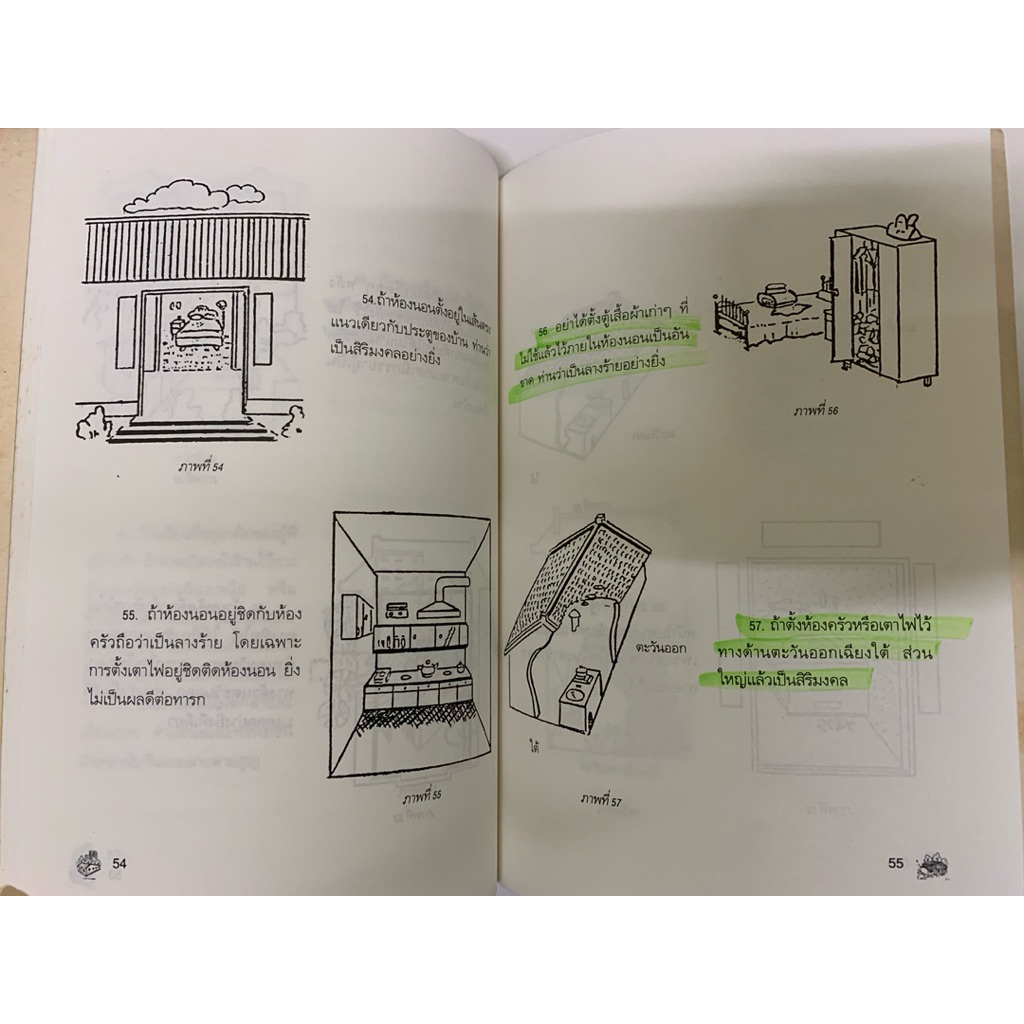 54.ถ้าห้องนอนตั้งอยู่ในเส้น
แนวเดียวกับประตูของบ้าน ท่านว่า
เป็นสิริมงคลอย่างยิ่ง
ภาพที่ 54
55. ถ้าห้องนอนอยู่ชิดกับห้อง
ครัวถือว่าเป็นลางร้าย โดยเฉพาะ
การตั้งเตาไฟอยู่ชิดติดห้องนอน ยิ่ง
ไม่เป็นผลดีต่อทารก
ภาพที่ 55
54
56. อย่าได้ตั้งตู้เสื้อผ้าเก่าๆ ที่
ไม่ใช้แล้วไว้ภายในห้องนอนเป็นอัน
ขาด ท่านว่าเป็นลางร้ายอย่างยิ่ง
ภาพที่ 56
ตะวันออก
ใต้
ภาพที่ 57
57. ถ้าตั้งห้องครัวหรือเตาไฟไว้
ทางด้านตะวันออกเฉียงใต้ ส่วน
ใหญ่แล้วเป็นสิริมงคล
55